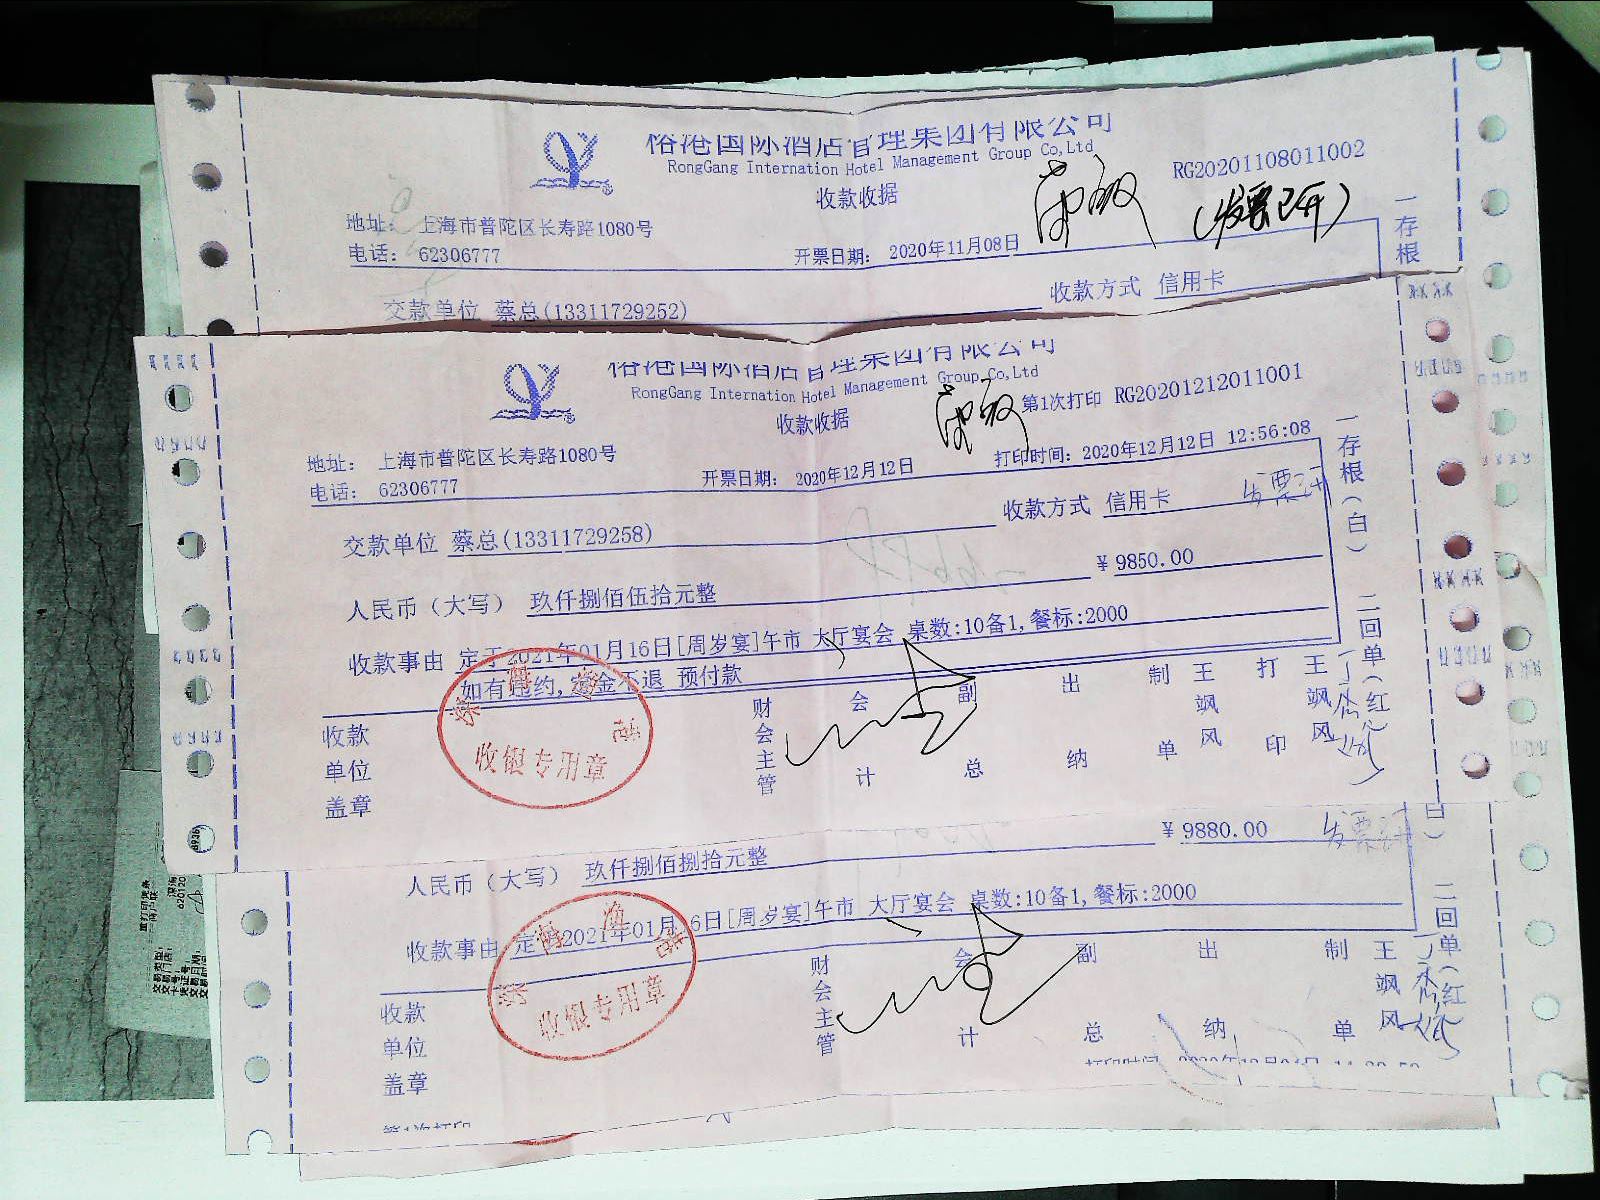 裕港国际酒店管理集团有限公司
RongGang International Hotel Management Group Co,Ltd
收款收据
RG20201108011002
(发票已开)
地址: 上海市普陀区长寿路1080号
电话: 62306777
开票日期: 2020年11月08日
一存根
交款单位 蔡总(13311729252)
收款方式 信用卡
裕港国际酒店管理集团有限公司
RongGang International Hotel Management Group Co,Ltd
收款收据
第1次打印 RG20201212011001
地址: 上海市普陀区长寿路1080号
电话: 62306777
开票日期: 2020年12月12日
打印时间: 2020年12月12日 12:56:08
交款单位 蔡总(13311729258)
收款方式 信用卡
发票已开
人民币(大写) 玖仟捌佰伍拾元整
¥9850.00
收款事由 定于2021年01月16日[周岁宴]午市 大厅宴会 桌数:10备1,餐标:2000
如有违约,定金不退 预付款
收款单位盖章
收银专用章
财会主管
会计
副总
出纳
制单
王飒风
打印
王飒风
一存根(白) 二回单(红)
¥9880.00
人民币(大写) 玖仟捌佰捌拾元整
收款事由 定于2021年01月16日[周岁宴]午市 大厅宴会 桌数:10备1,餐标:2000
收款单位盖章
收银专用章
财会主管
会计
副总
出纳
制单
王飒风
白) 二回单(红
第1次打印